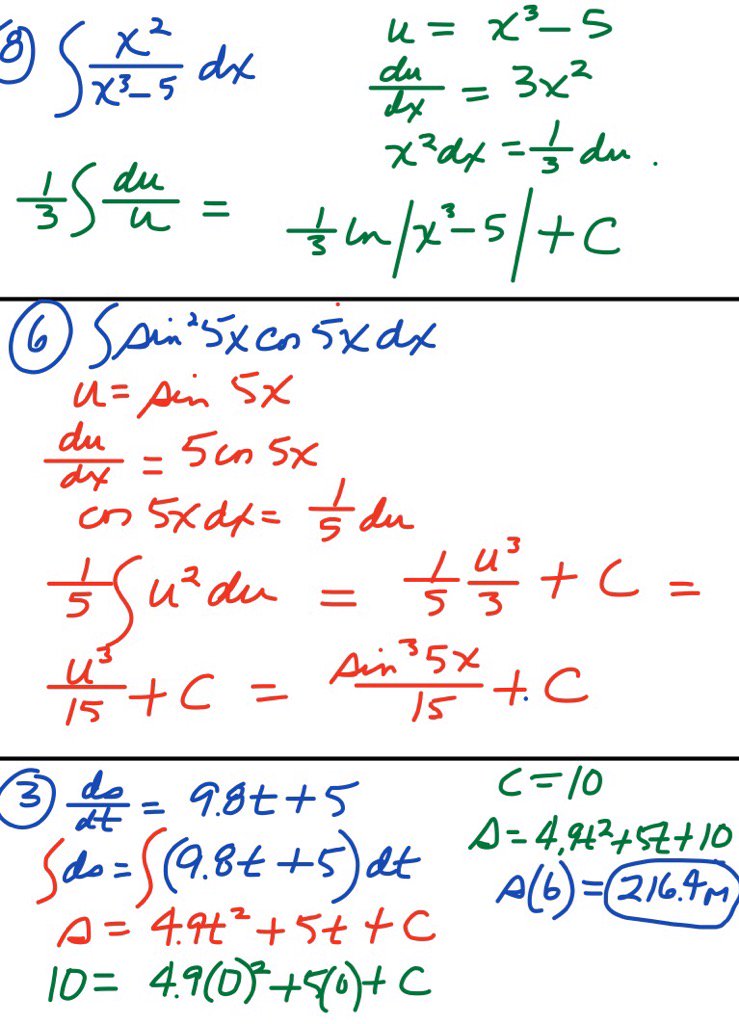 8 ∫ x²/(x³-5) dx
u = x³-5
du/dx = 3x²
x²dx = 1/3 du.
1/3 ∫ du/u = 1/3 ln|x³-5| + C
6 ∫ sin²5x cos 5x dx
u = sin 5x
du/dx = 5 cos 5x
cos 5x dx = 1/5 du
1/5 ∫ u² du = 1/5 u³/3 + C =
u³/15 + C = sin³5x/15 + C
3 ds/dt = 9.8t + 5
∫ ds = ∫ (9.8t + 5) dt
s = 4.9t² + 5t + C
10 = 4.9(0)² + 5(0) + C
C = 10
s = 4.9t² + 5t + 10
s(6) = 216.4m